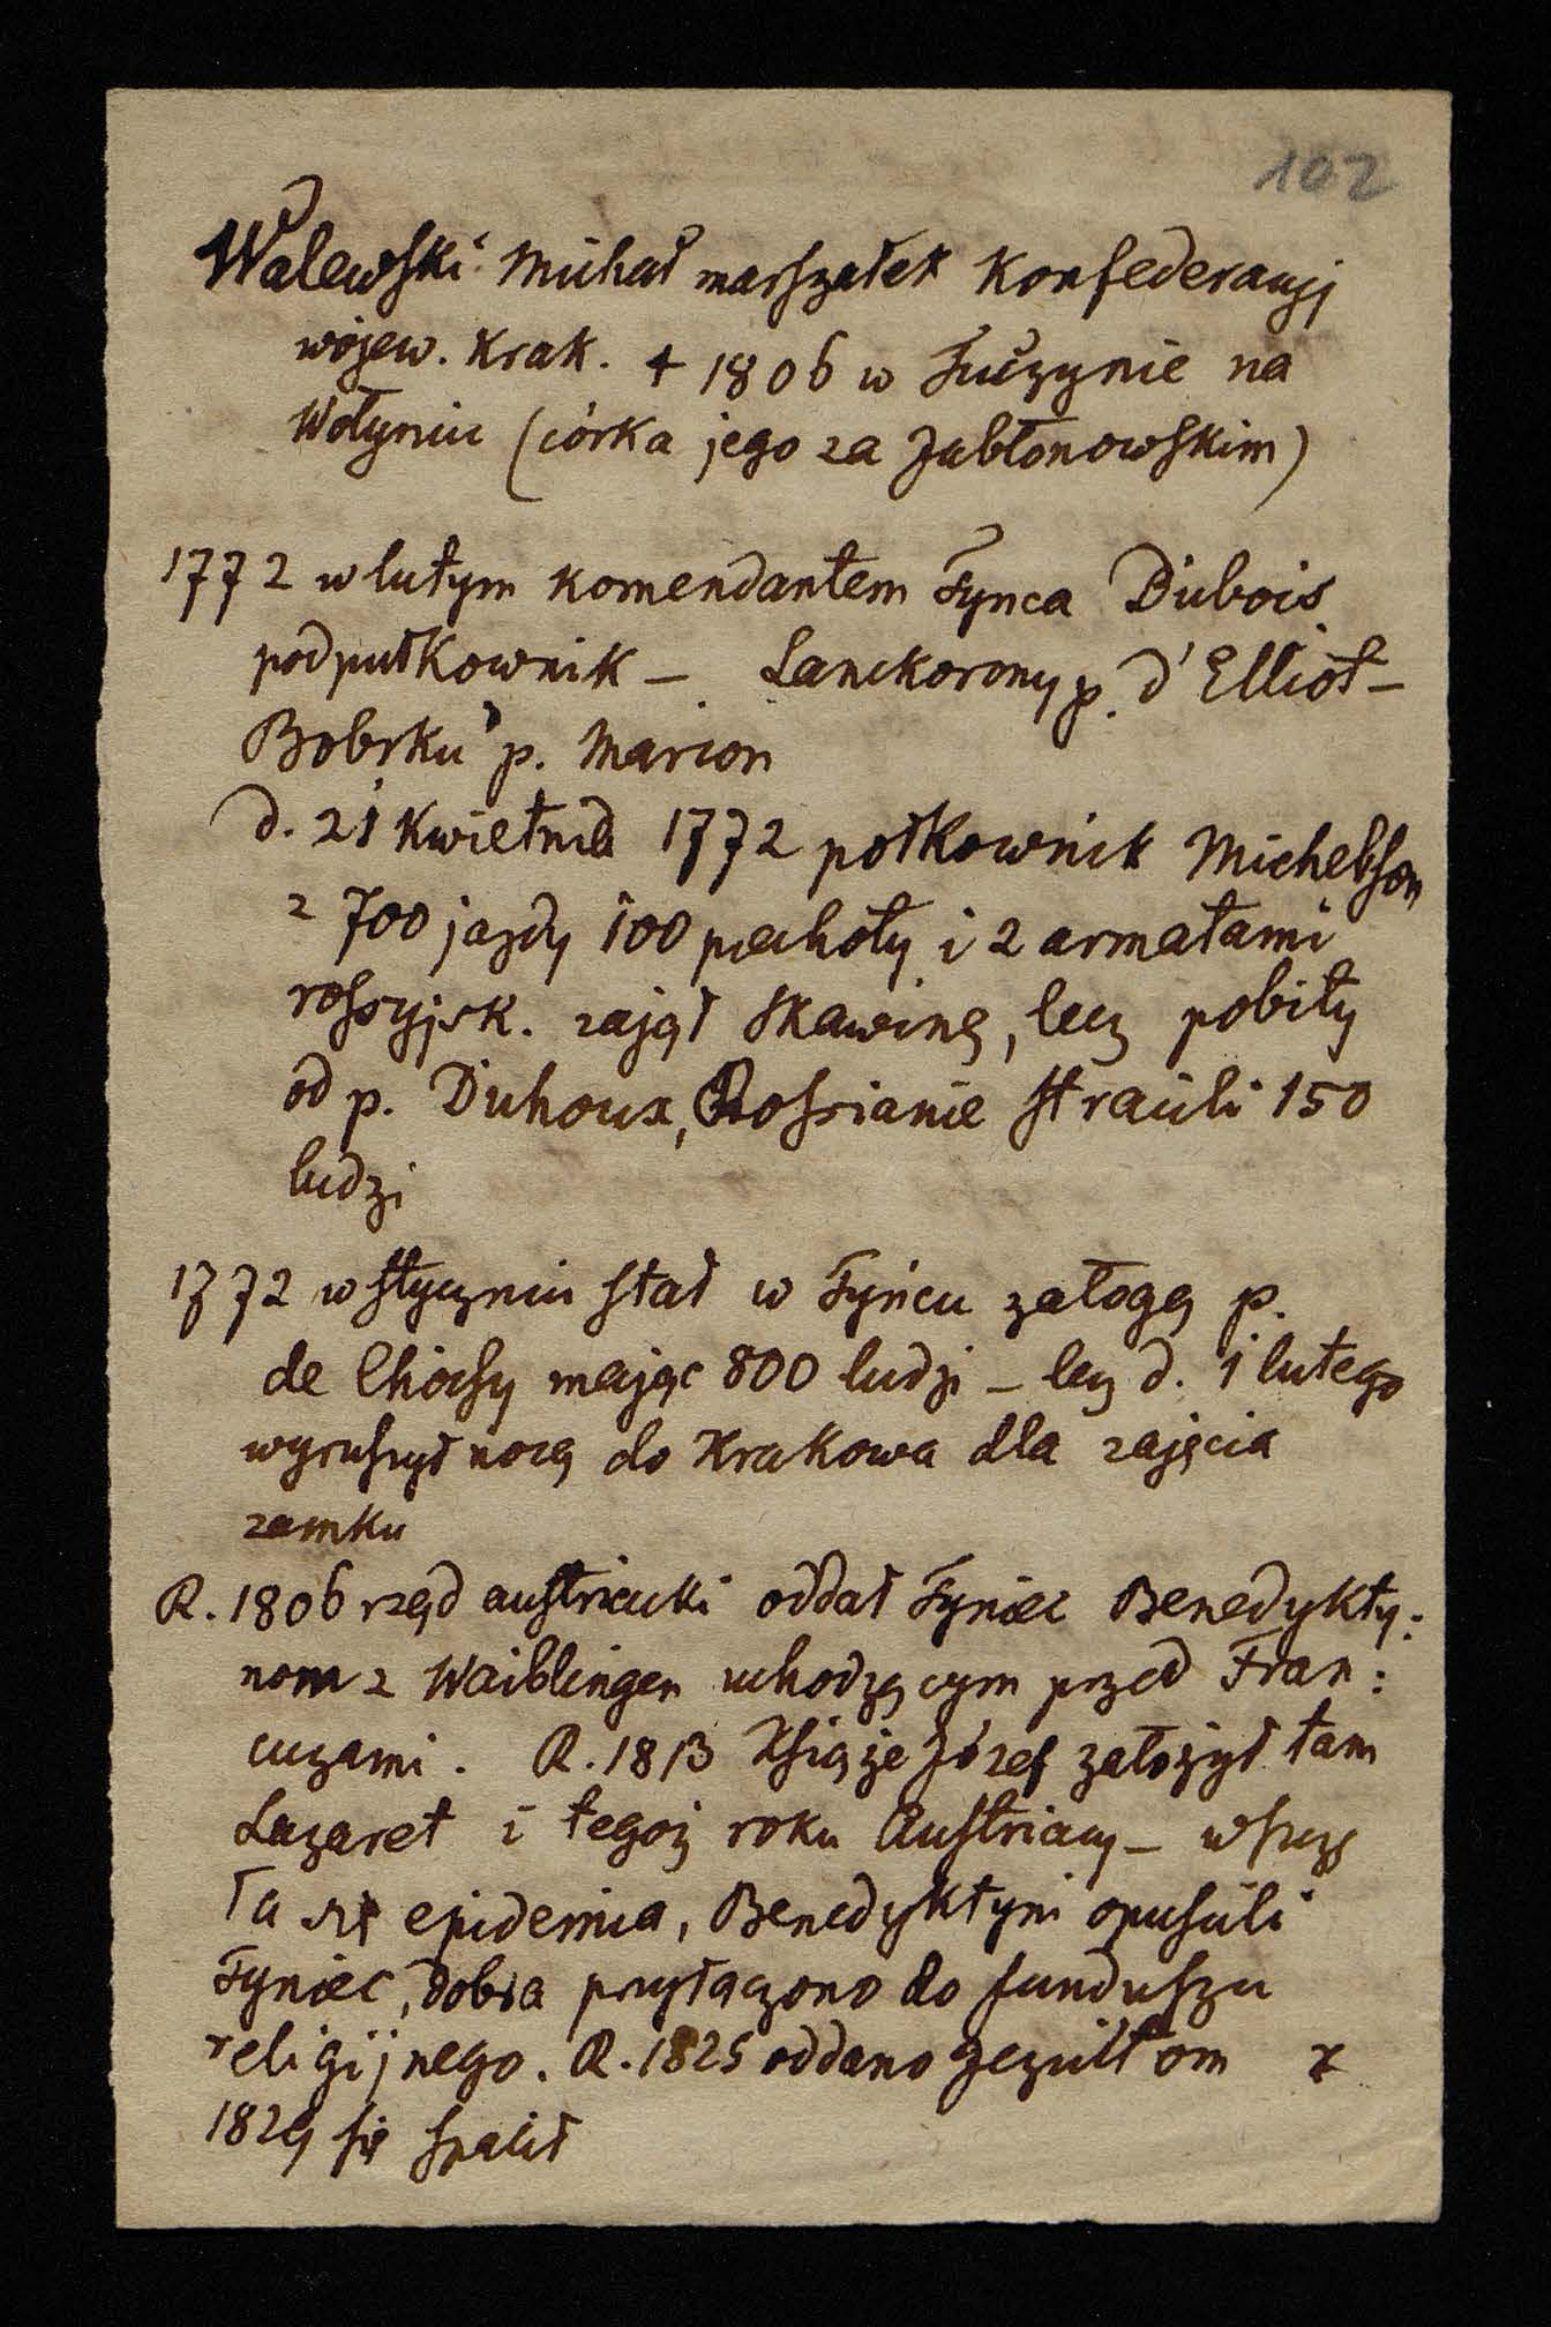 102
Walewski Michał marszałek Konfederacyj
wojew. Krak. + 1806 w Tuczynie na
Wołyniu (córka jego za Jabłonowskim)
1772 w lutym komendantem Tynca Dubois
podpułkownik – Lanckorony p. d'Elliot –
Bobrku p. Marion
d. 21 kwietnia 1772 połkownik Michelson
z 700 jazdy 100 piechoty i 2 armatami
rossyjsk. zajął Skawinę, lecz pobity
od p. Duhoux, Rossianie stracili 150
ludzi
1772 w styczniu stał w Tyńcu załogą p.
de Choisy mając 800 ludzi – lecz d. 1 lutego
wyruszył nocą do Krakowa dla zajęcia
zamku
R. 1806 rząd austriacki oddał Tyniec Benedykty:
nom z Waiblingen uchodzącym przed Fran:
cuzami. R. 1813 Książe Józef założył tam
Lazaret i tegoż roku Austriacy – wszczę
ła się epidemia, Benedyktyni opuścili
Tyniec, dobra przyłączono do funduszu
religijnego. R. 1825 oddano Jezuitom
1829 się spalił